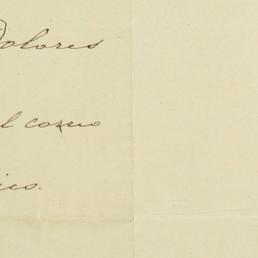 Dolores
l correo
ico.